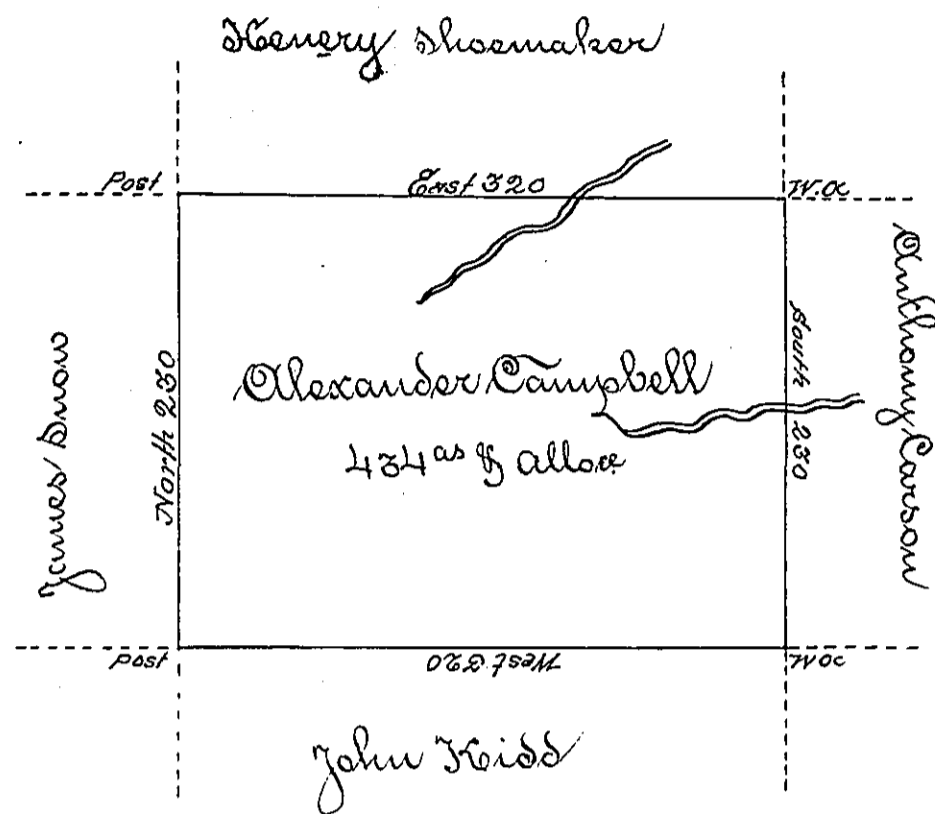 Henery Shoemaker
Post
East 320
W.Oc
James Snow
North 230
Alexander Campbell
434 as & alloce
South 230
Anthony Carson
Post
West 320
W.Oc
John Kidd